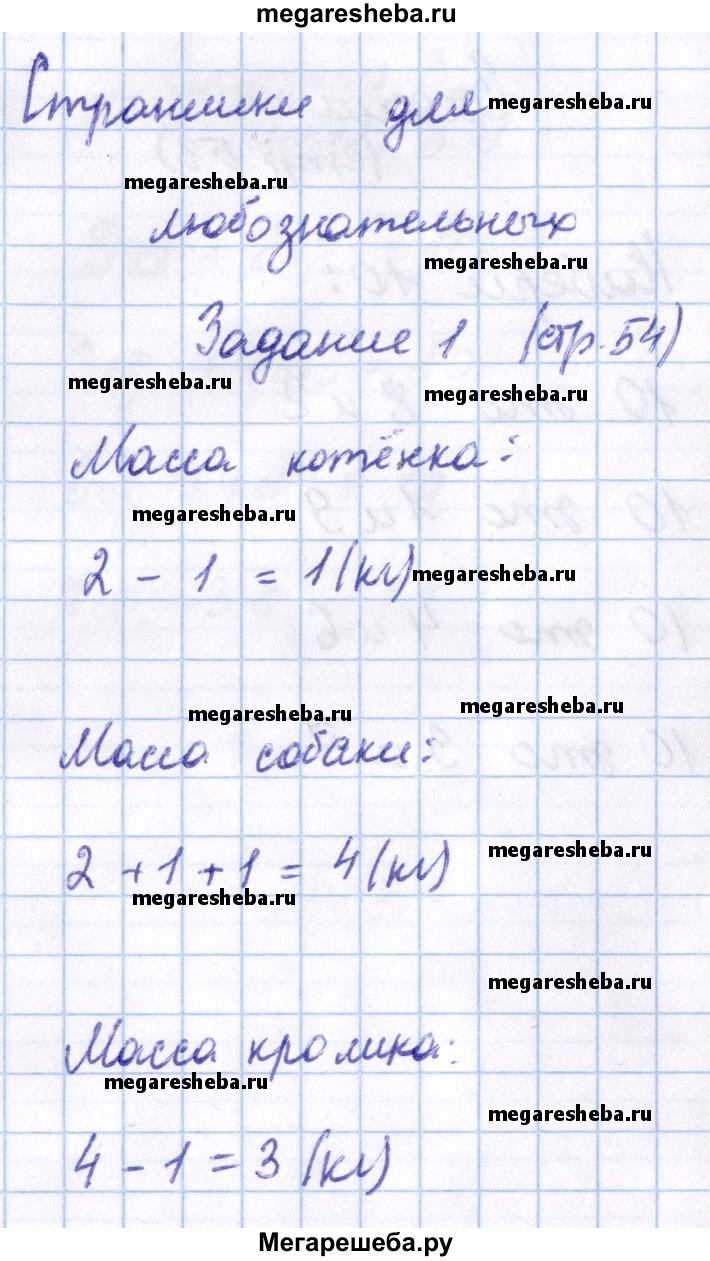 megaresheba.ru
Странички для megaresheba.ru
megaresheba.ru
любознательных
megaresheba.ru
Задание 1 (стр. 54)
megaresheba.ru
megaresheba.ru
Масса котёнка:
megaresheba.ru
2 - 1 = 1 (кг) megaresheba.ru
megaresheba.ru megaresheba.ru
Масса собаки:
2 + 1 + 1 = 4 (кг) megaresheba.ru
megaresheba.ru
megaresheba.ru
Масса кролика:
megaresheba.ru
megaresheba.ru
4 - 1 = 3 (кг)
Мегарешеба.ру